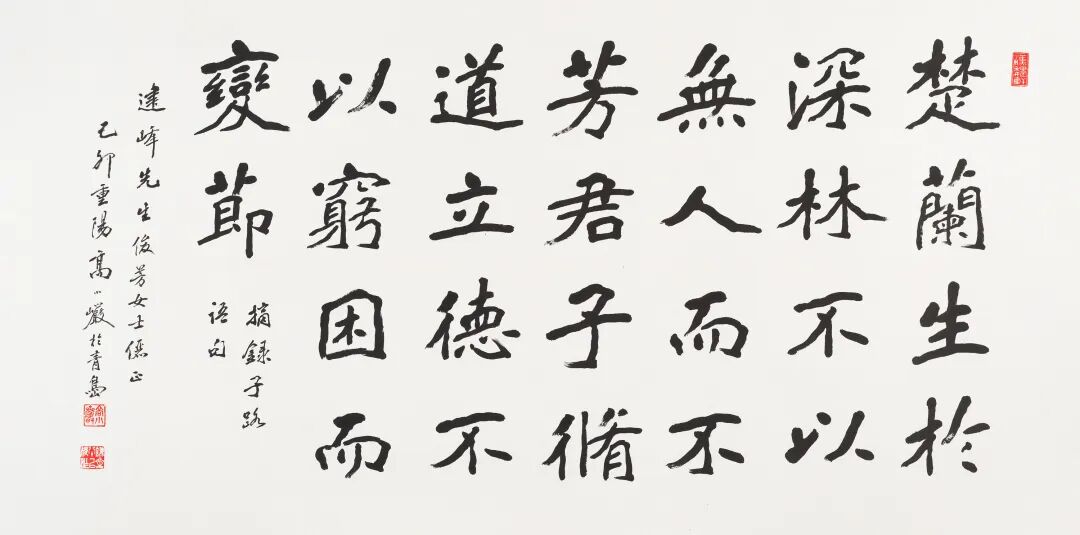 楚蘭生於
深林不以
無人而不
芳君子脩
道立德不
以窮困而
變莭
摘録子路
语句
建峰先生俊芳女士儷正
己卯重陽高小巖於青島